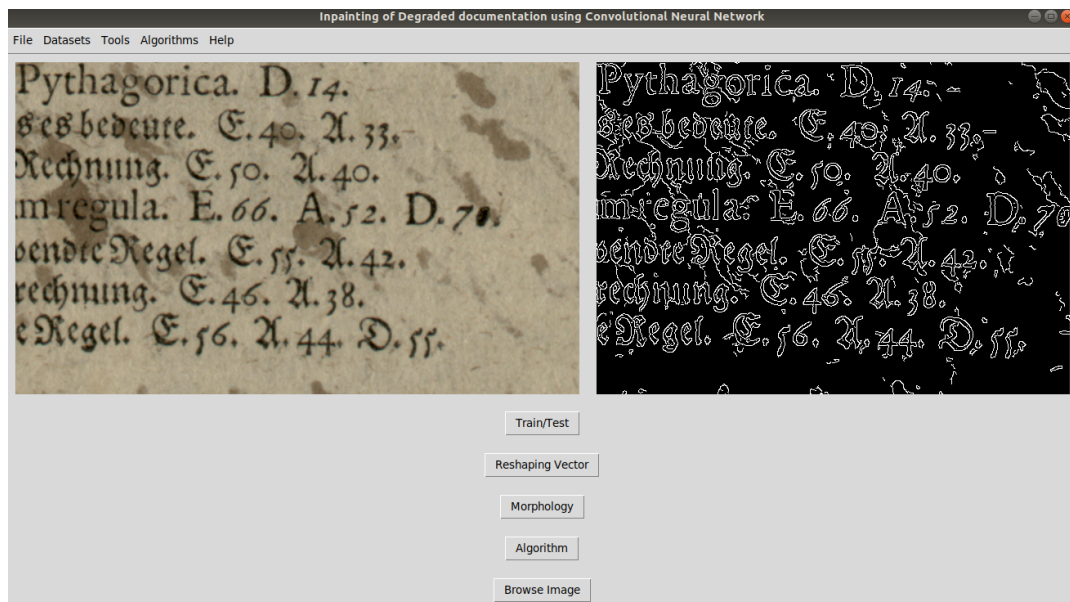 Inpainting of Degraded documentation using Convolutional Neural Network
File Datasets Tools Algorithms Help
Pythagorica. D. 14.
ses bedeute. E. 40. A. 33.
Rechnung. E. 50. A. 40.
m regula. E. 66. A. 52. D. 70.
wendte Regel. E. 55. A. 42.
rechnung. E. 46. A. 38.
e Regel. E. 56. A. 44. D. 55.
Pythagorica. D. 14.
ses bedeute. E. 40. A. 33.
Rechnung. E. 50. A. 40.
m regula. E. 66. A. 52. D. 70
wendte Regel. E. 55. A. 42.
rechnung. E. 46. A. 38.
e Regel. E. 56. A. 44. D. 55.
Train/Test
Reshaping Vector
Morphology
Algorithm
Browse Image